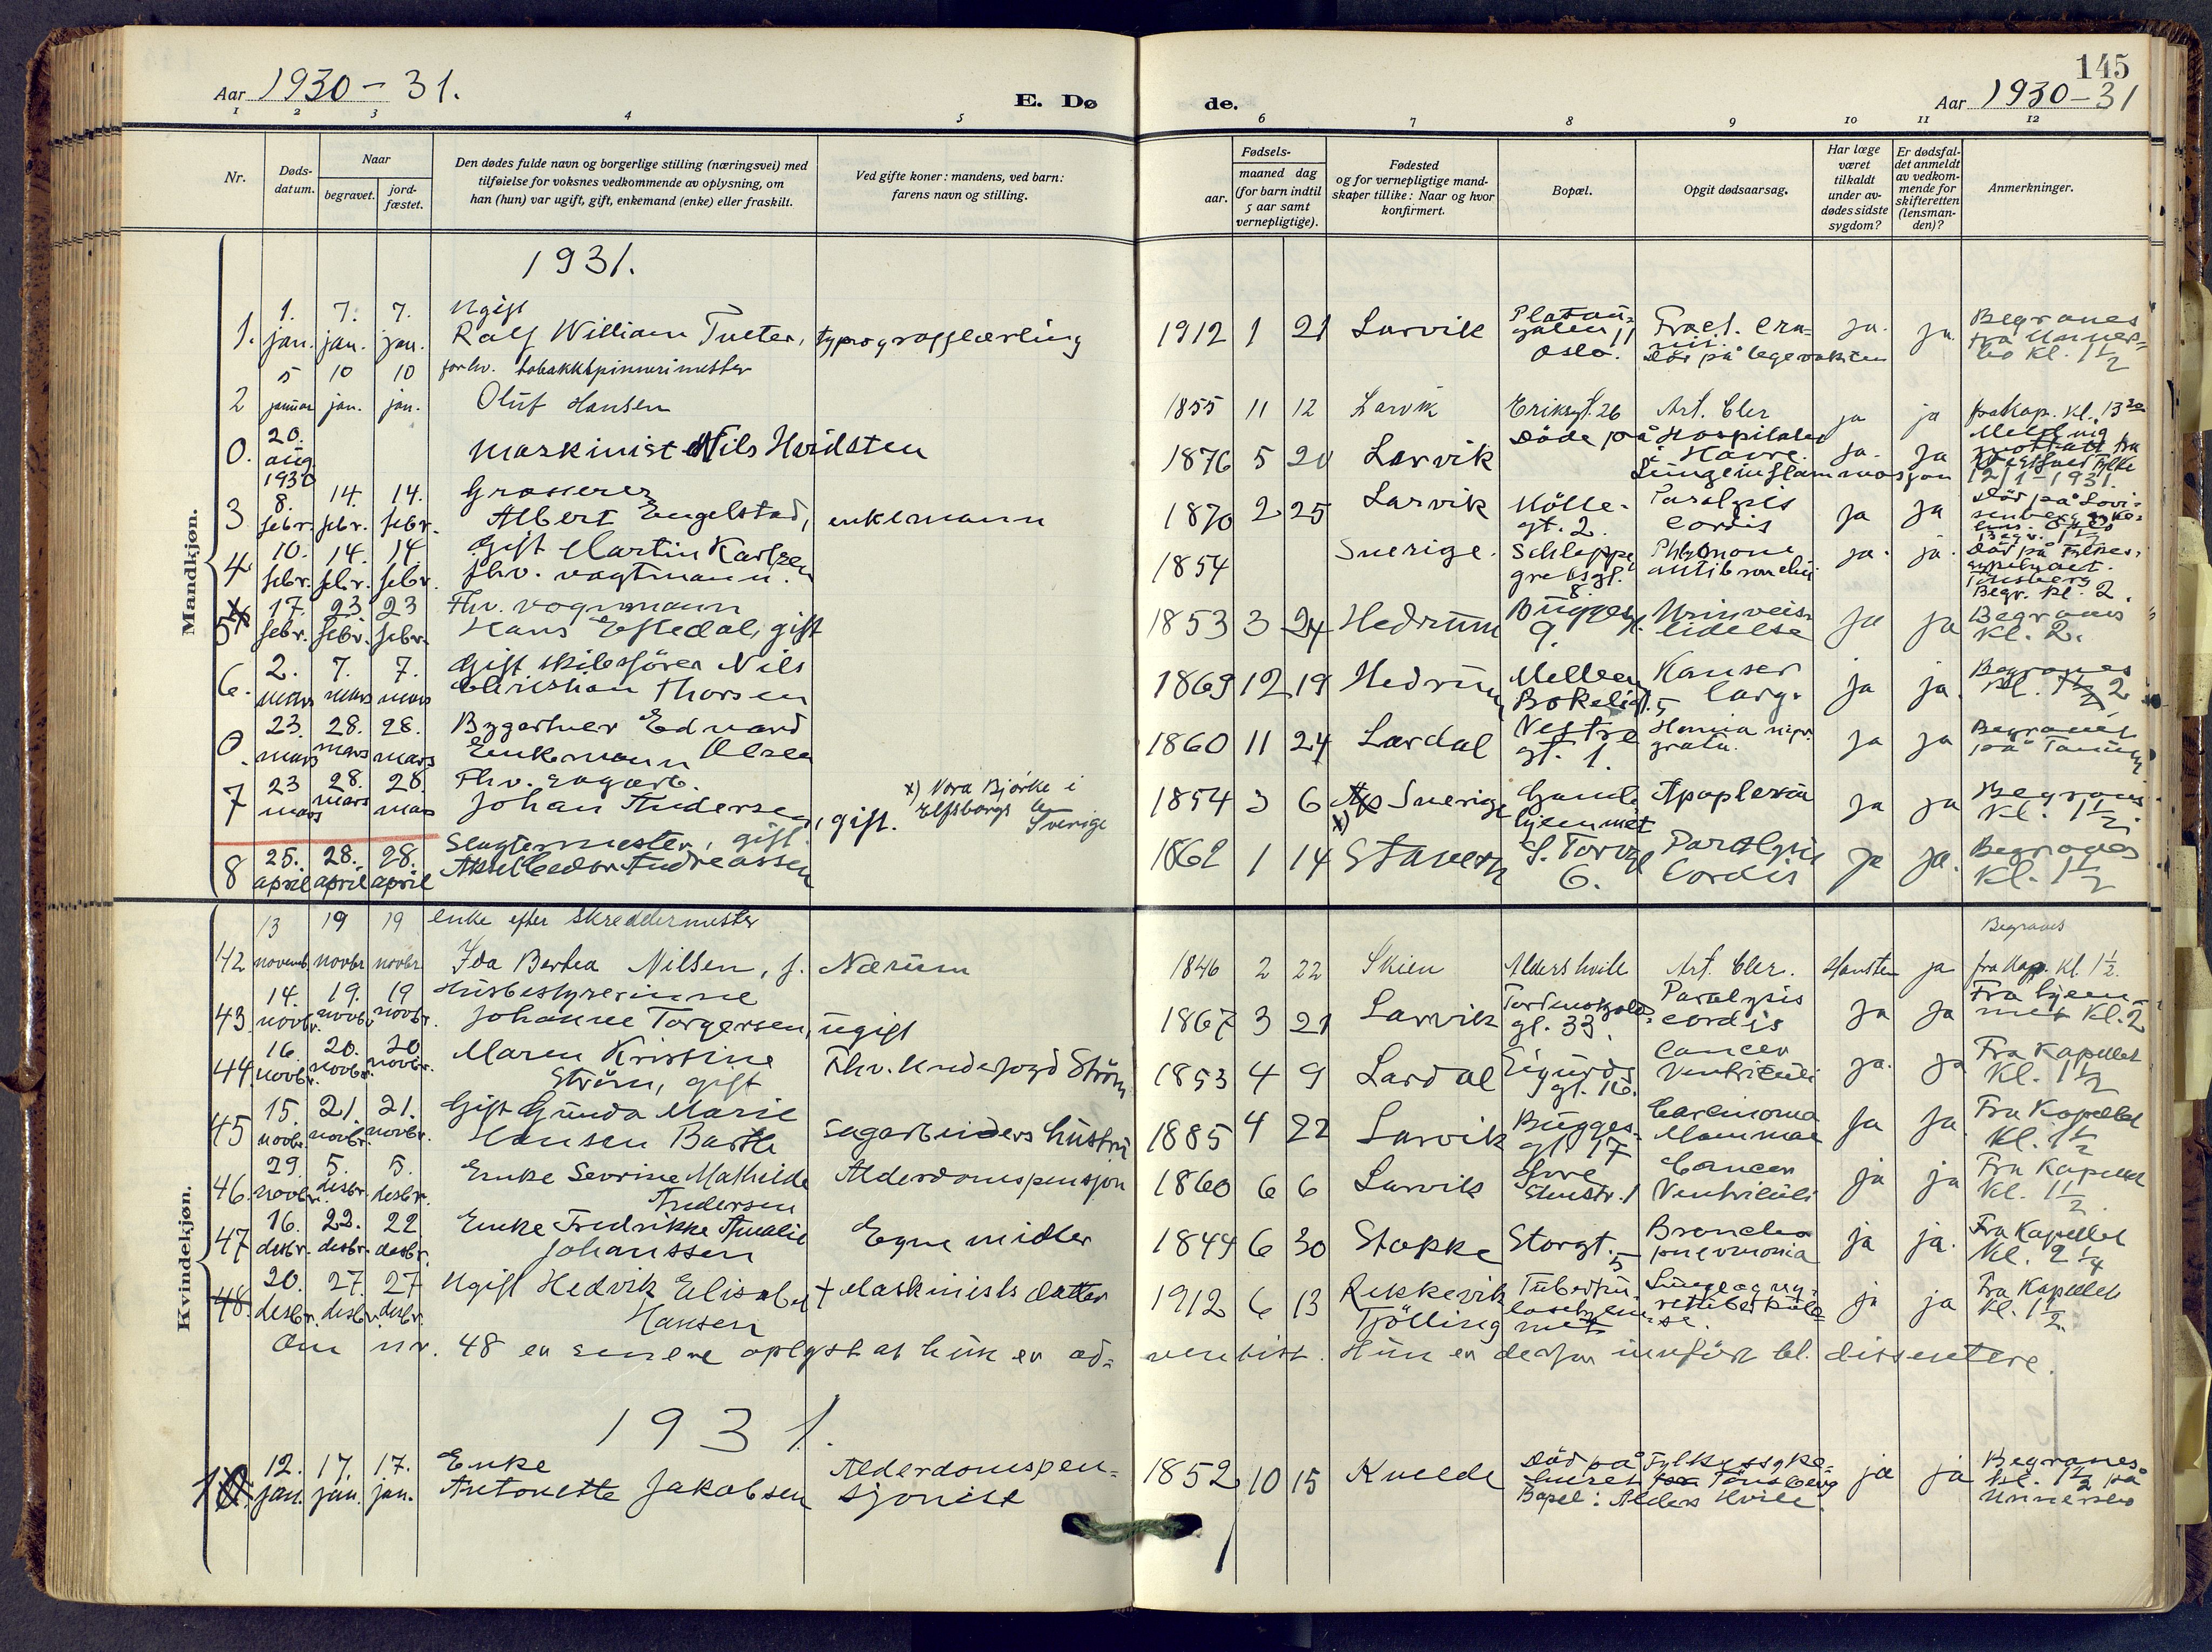 Aar 1930-31.
E. Dø
de.
145
Aar 1930-31
1 2 3 4 5 6 7 8 9 10 11 12
Nr.
Døds-
datum.
Naar
begravet.
jord-
fæstet.
Den dødes fulde navn og borgerlige stilling (næringsvei) med
tilføielse for voksnes vedkommende av oplysning, om
han (hun) var ugift, gift, enkemand (enke) eller fraskilt.
Ved gifte koner: mandens, ved barn:
farens navn og stilling.
Fødsels-
aar.
maaned dag
(for barn indtil
5 aar samt
vernepligtige).
Fødested
og for vernepligtige mand-
skaper tillike: Naar og hvor
konfirmert.
Bopæl.
Opgit dødsaarsag.
Har læge
været
tilkaldt
under av-
dødes sidste
sygdom?
Er dødsfal-
det anmeldt
av vedkom-
mende for
skifteretten
(lensman-
den)?
Anmerkninger.
Mandkjøn.
1931.
1. 1. jan. 7. jan. 7. jan. Ugift
Ralf William Tveter, typograflærling
1912 1 21 Larvik Platou-
gaten 11
Oslo. Fract. cra-
nii.
Död på legevakten ja. ja. Begraves
fra Unners-
bo kl. 1½
2 5 januar 10 jan. 10 jan. forhv. tobakkspinnerimester
Oluf Hansen
1855 11 12 Larvik Eriksgt. 26 Art. Cler ja ja fra Kap. kl. 13 30
0. 20. aug. 1930 maskinist Nils Hvidsten
1876 5 20 Larvik Döde på Hospitalet
i Havre.
Lungeinflammasjon ja. ja Melding
fra
Vestfold fylke
12/1-1931.
3 8. febr. 14. febr. 14. febr. Grosserer
Albert Engelstad, enkemann
1870 2 25 Larvik Mölle-
gt. 2. Paralysis
Cordis ja ja Död på Lovi-
senberg syke-
hus. Oslo
Begr. 1½
4 10. febr. 14. febr. 14. febr. Gift Martin Karlsen
fhv. vagtmann.
1854 Sverige. Schleppe-
grelsgt.
8. ja. ja. Död på Fylkes-
sykehuset.
Tönsberg
Begr. kl. 2.
5 17. febr. 23 febr. 23 febr. Fhv. vognmann
Hans Eftedal, gift
1853 3 24 Hedrum Bügges gt.
9. Urinveis-
lidelse ja ja Begraves
kl. 2.
6. 2. mars 7. mars 7. mars Gift skibsförer Nils
Christian Thorsen
1869 12 19 Hedrum Mellom
Bökeligt. 5 Kanser
larg. ja ja. Begraves
kl. 1½ 2
0. 23. mars 28. mars 28. mars Bygartner Edvard
Enkemann Olsen
1860 11 24 Lardal Vestre
gt. 1. Hernia
ja ja Begravet
på Tanum
7 23 mars 28. mars 28. mars Fhv. sagarb.
Johan Andersen, gift.
x) Nora Bjørke i
Elfsborgs len
Sverige
1854 3 6 Sverige x) Gamle
hjemmet Apoplexia ja ja Begraves
kl. 1½
8 25. april 28. april 28. april Slagtermester, gift
Aksel Cedor Andreassen
1862 1 14 Stavern S. Torvgt
6. Paralysis
Cordis ja ja. Begraves
kl. 1½
Kvindekjøn.
42 13 novemb. 19 novbr 19 novbr. enke efter skreddermester
Ida Berthea Nilsen, f. Nærum
1846 2 22 Skien Aldershvile Art. Cler. Hansten ja Begraves
fra Kap. kl. 1½.
43. 14. novbr. 19. novbr. 19 novbr. Husbestyrerinne
Johanne Torgersen, ugift
1867 3 21 Larvik Tordenskjolds
gt. 33. Paralysis
cordis ja ja Fra hjem-
met kl. 2
44. 16. novbr. 20. novbr. 20 novbr. Maren Kristine
Ström, gift Fhv. Underfogd Ström
1853 4 9 Lardal Sigurds
gt. 16. Cancer
Ventriculi ja. ja Fra Kapellet
kl. 1½
45 15. novbr. 21. novbr. 21. novbr. Gift Gunda Marie
Hansen Barth Sagarbeiders hustru
1885 4 22 Larvik Bügges-
gt. 17 Carcinoma
Mammae ja ja Fra Kapellet
kl. 1½
46. 29. novbr. 5. desbr. 5. desbr. Enke Sevrine Mathilde
Andersen Alderdomspensjon
1860 6 6 Larvik Övre
Stenstr. 1 Cancer
Ventriculi ja ja Fra Kapellet
kl. 1½
47 16. desbr. 22. desbr. 22 desbr. Enke Fredrikke Amalie
Johanssen Egne midler
1844 6 30 Stokke Storgt.
5 Broncho
pnevmonia ja ja. Fra Kapellet
kl. 2¼
48. 20. desbr. 27. desbr. 27 desbr. Ugift Hedvik Elisabet
Hansen + Maskinists datter
1912 6 13 Rekkevik
Tjölling Tuberku-
losehjem-
met Lunge og ny-
retuberkulo-
se. ja ja Fra Kapellet
kl. 1½
Om nr. 48 er senere oplyst at hun er ad-
ventist. Hun er derfor innfört bl. dissentere.
1931.
1 12. jan. 17. jan. 17. jan. Enke
Antonette Jakobsen Alderdomspen-
sjonist
1852 10 15 Kvelde Död på Fylkessyke-
huset Tönsberg
Bopel: Alders Hvile. ja ja Begraves
kl. 1½ på
Undersbo